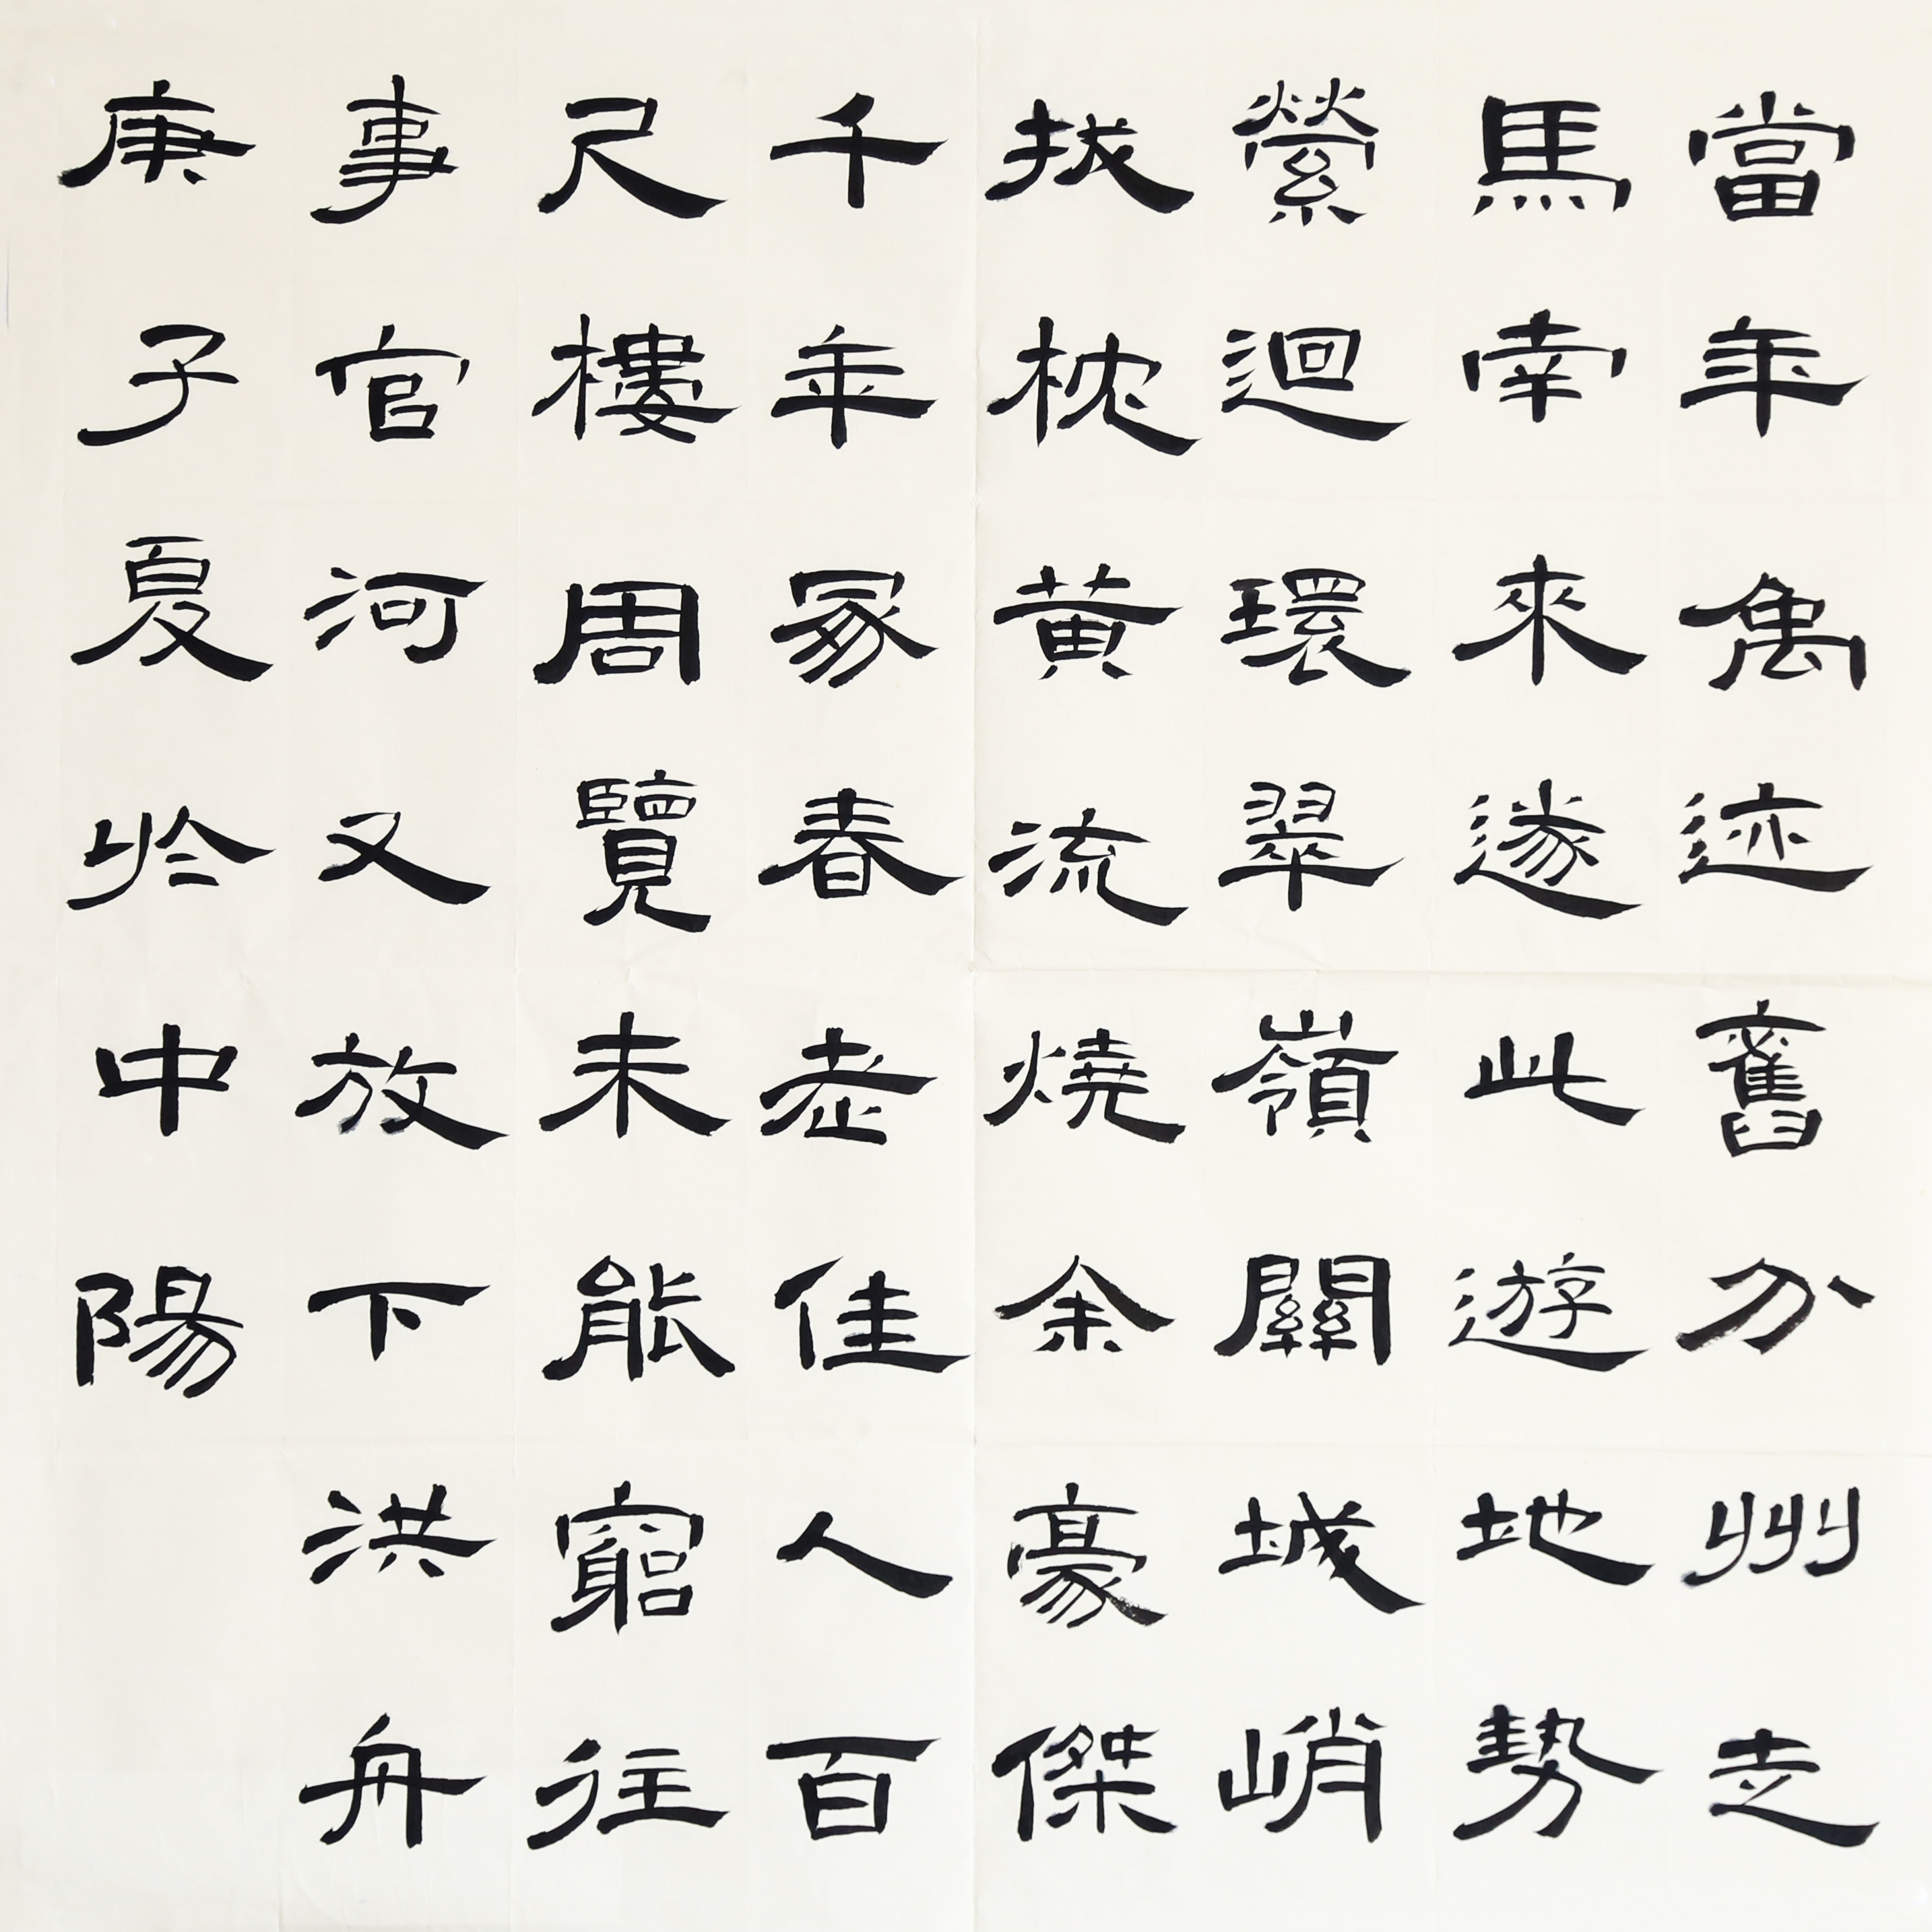 當年禹迹舊分州走
馬南來遂此遊地勢
縈迴環翠嶺關城峭
拔枕黄流燒余豪傑
千年冢春老佳人百
尺樓周覽未能窮往
事官河又放下洪舟
庚子夏於中陽